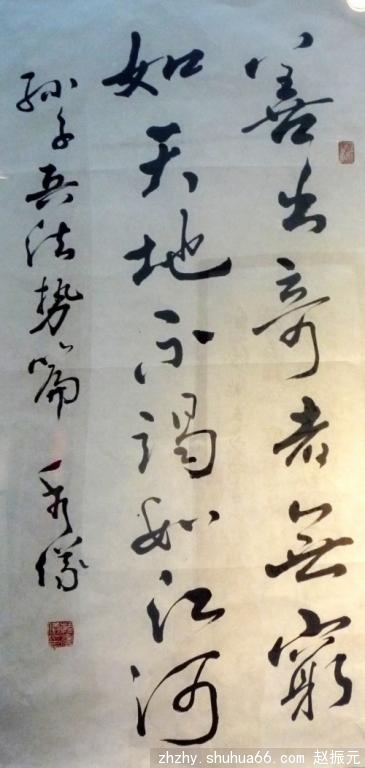 善出奇者無窮
如天地不竭如江河
孫子兵法势篇
zhzhy.shuhua66.com 赵振元